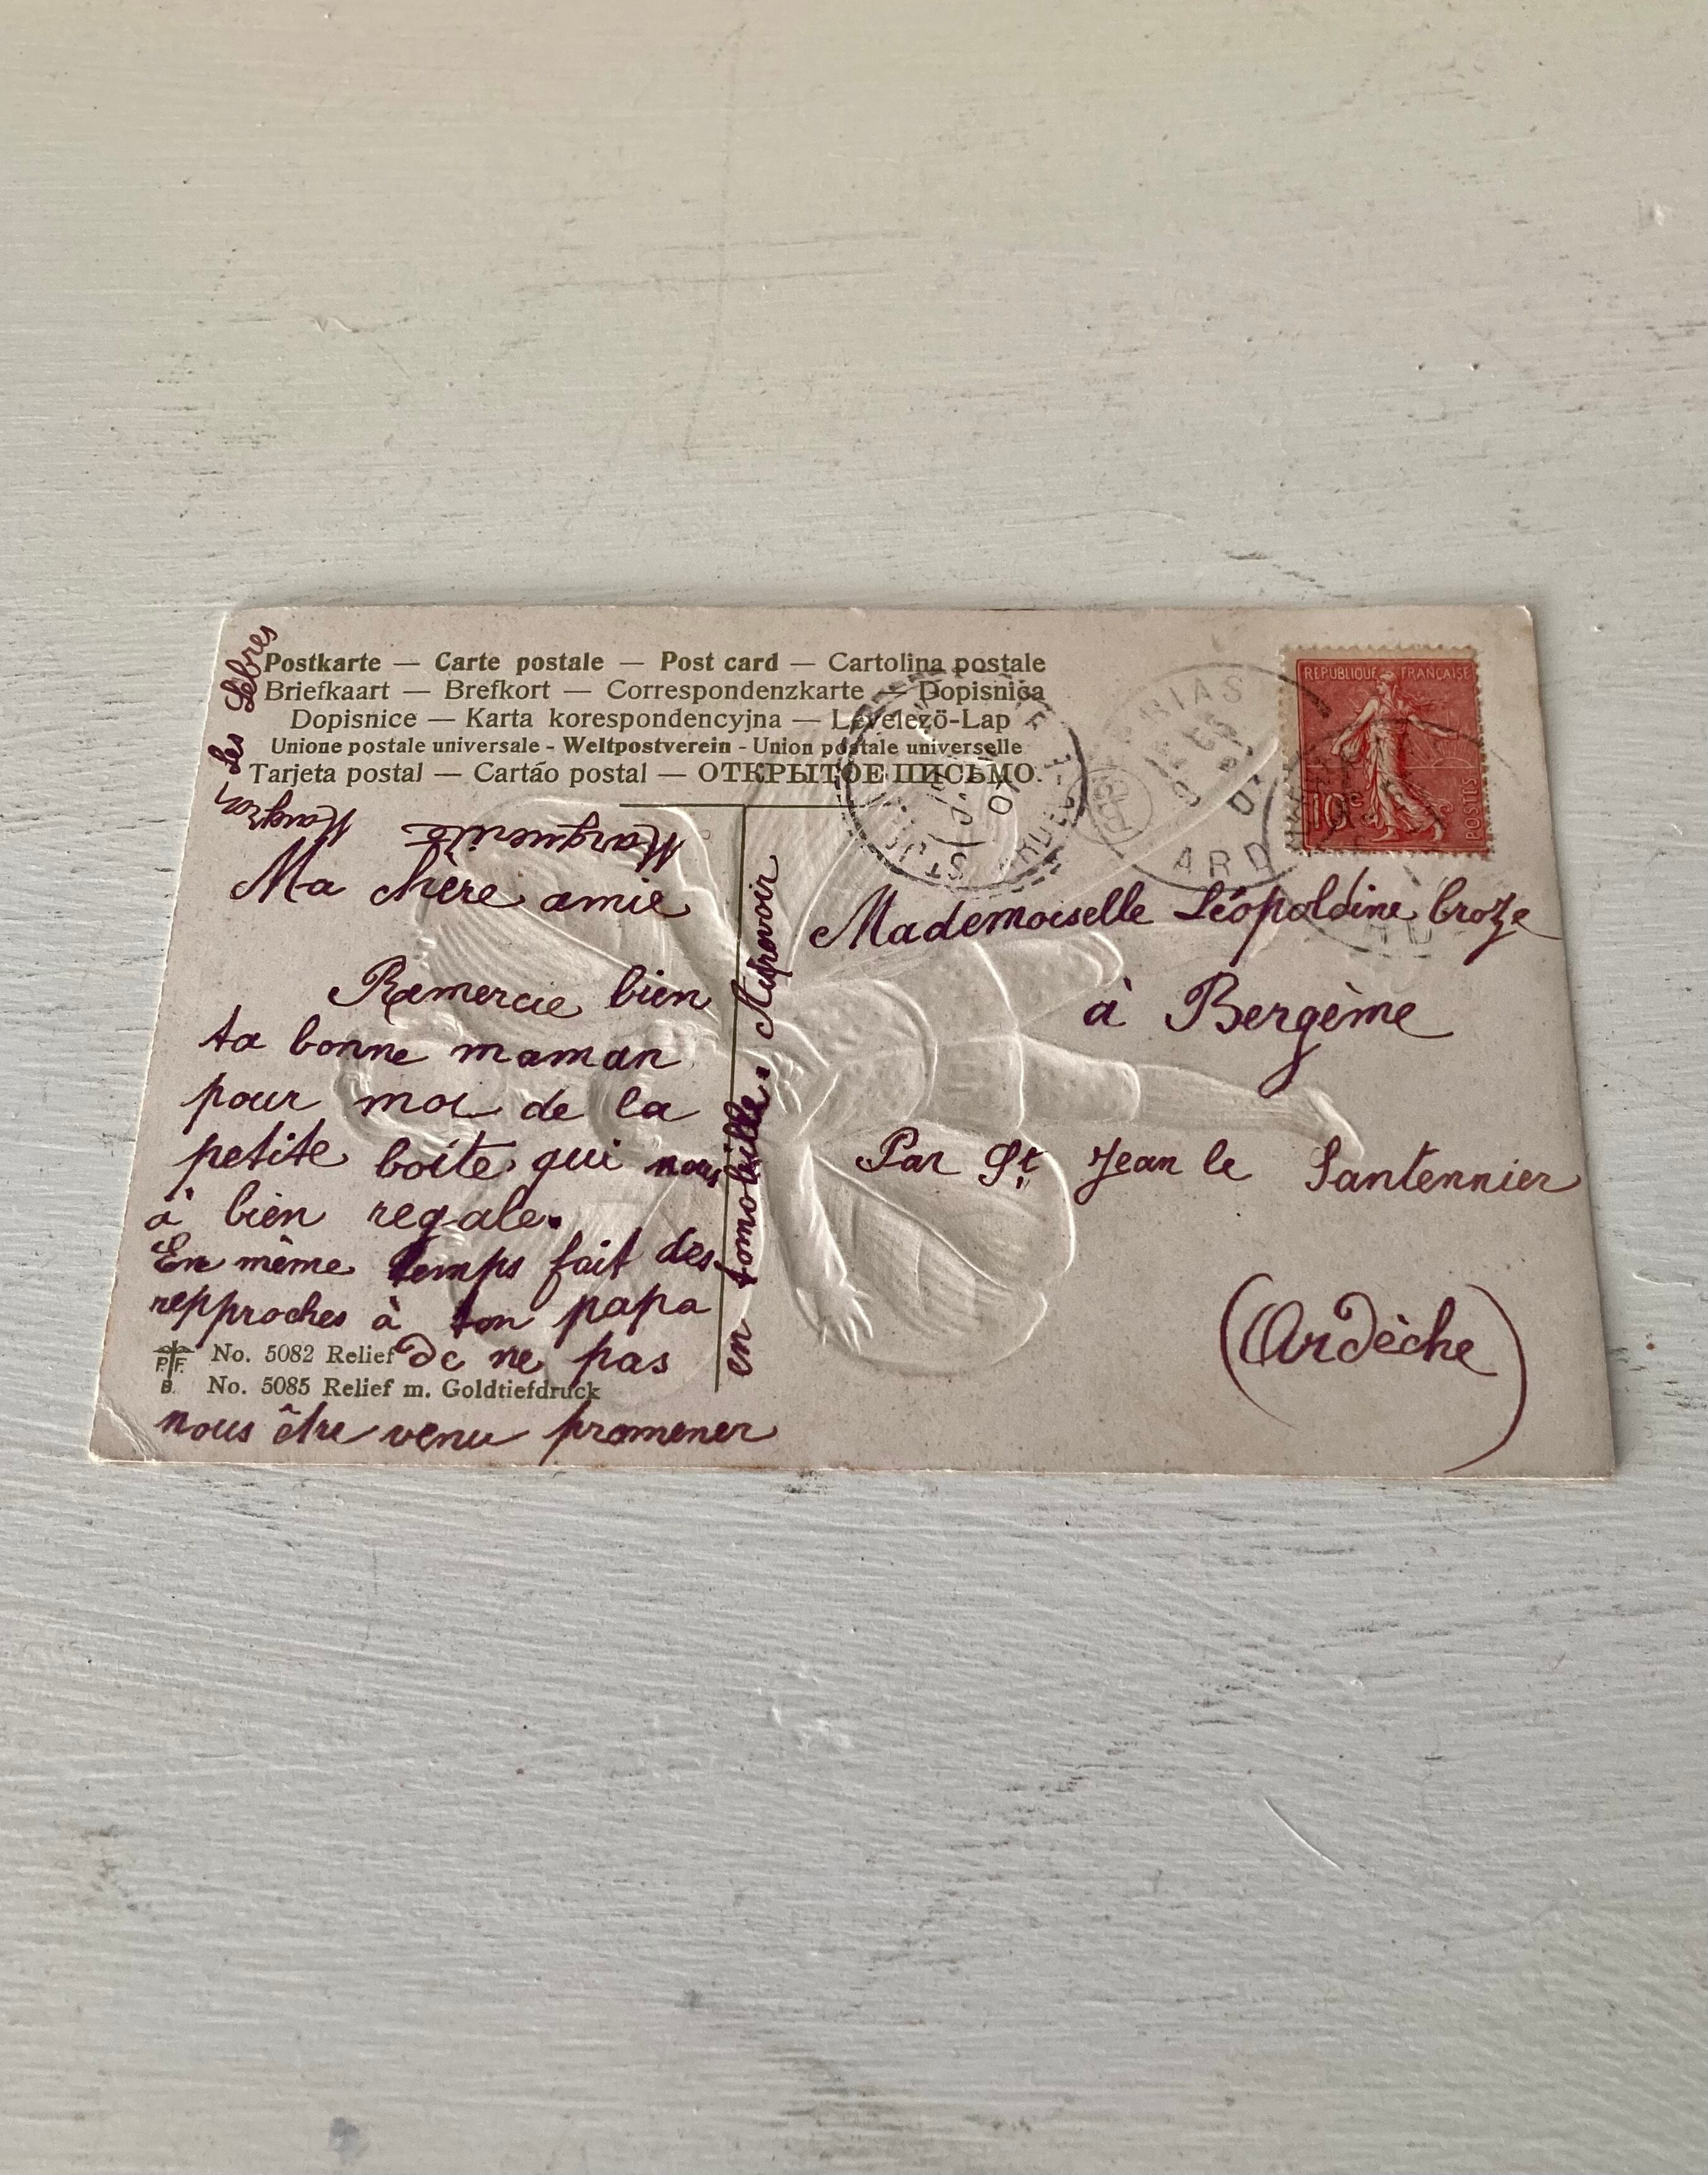 Postkarte — Carte postale — Post card — Cartolina postale
Briefkaart — Brefkort — Correspondenzkarte — Dopisnica
Dopisnice — Karta korespondencyjna — Levelezö-Lap
Unione postale universale - Weltpostverein - Union postale universelle
Tarjeta postal — Cartáo postal — ОТКРЫТОЕ ПИСЬМО.
Ma chère amie
Remercie bien
ta bonne maman
pour moi de la
petite boîte qui nous
à bien regale.
En même temps fait des
repproches à ton papa
de ne pas
nous être venu promener
en tomobille. Aurevoir
Marguerite
les Lèbres
P. F. B.
No. 5082 Relief
No. 5085 Relief m. Goldtiefdruck
REPUBLIQUE FRANÇAISE
10c
POSTES
BIAS
ARD
Mademoiselle Léopoldine Croze
à Bergème
Par St Jean le Santennier
(Ardèche)